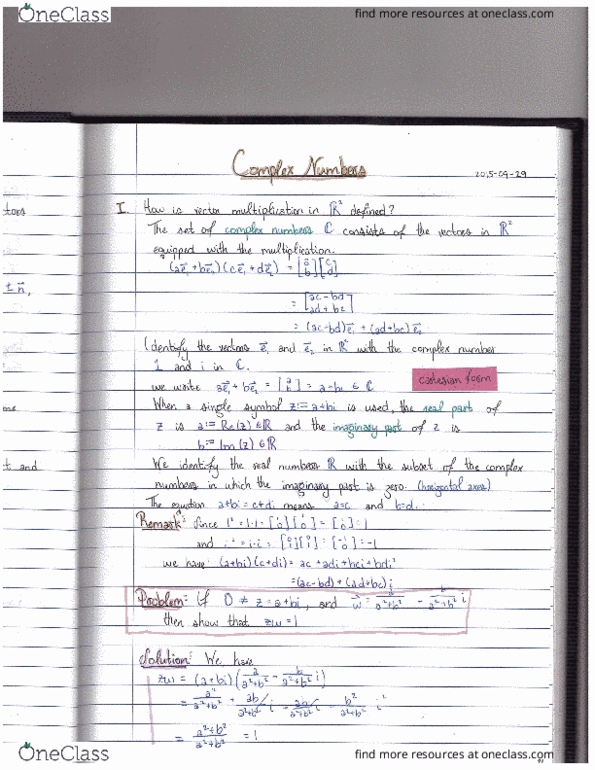 OneClass
find more resources at oneclass.com
Complex Numbers
2015-09-29
tors
I. How is vector multiplication in ℝ² defined?
The set of complex numbers ℂ consists of the vectors in ℝ²
equipped with the multiplication.
(ae⃗₁+be⃗₂)(ce⃗₁+de⃗₂) = [a b][c d]
= [ac-bd ad+bc]
= (ac-bd)e⃗₁ + (ad+bc)e⃗₂
Identify the vectors e⃗₁ and e⃗₂ in ℝ² with the complex number
1 and i in ℂ.
Cartesian form
we write ae⃗₁+be⃗₂ = [a b] = a+bi ∈ ℂ
me
When a single symbol z:=a+bi is used, the real part of
z is a:=Re(z)∈ℝ and the imaginary part of z is
b:=Im(z)∈ℝ
t and
We identify the real numbers ℝ with the subset of the complex
numbers in which the imaginary part is zero. (horizontal axis)
The equation a+bi=c+di means a=c and b=d.
Remark: Since 1²=1·1=[1 0][1 0]=[1 0]=1
and i²=i·i=[0 1][0 1]=[-1 0]=-1
we have: (a+bi)(c+di)= ac+adi+bci+bdi²
=(ac-bd)+(ad+bc)i
Problem: If 0 ≠ z=a+bi, and w = a/(a²+b²) - b/(a²+b²) i
then show that zw=1
Solution: We have
zw = (a+bi)(a/(a²+b²) - b/(a²+b²) i)
= a²/(a²+b²) + ab/(a²+b²) i - ab/(a²+b²) i - b²/(a²+b²) i²
= (a²+b²)/(a²+b²) = 1
OneClass
find more resources at oneclass.com